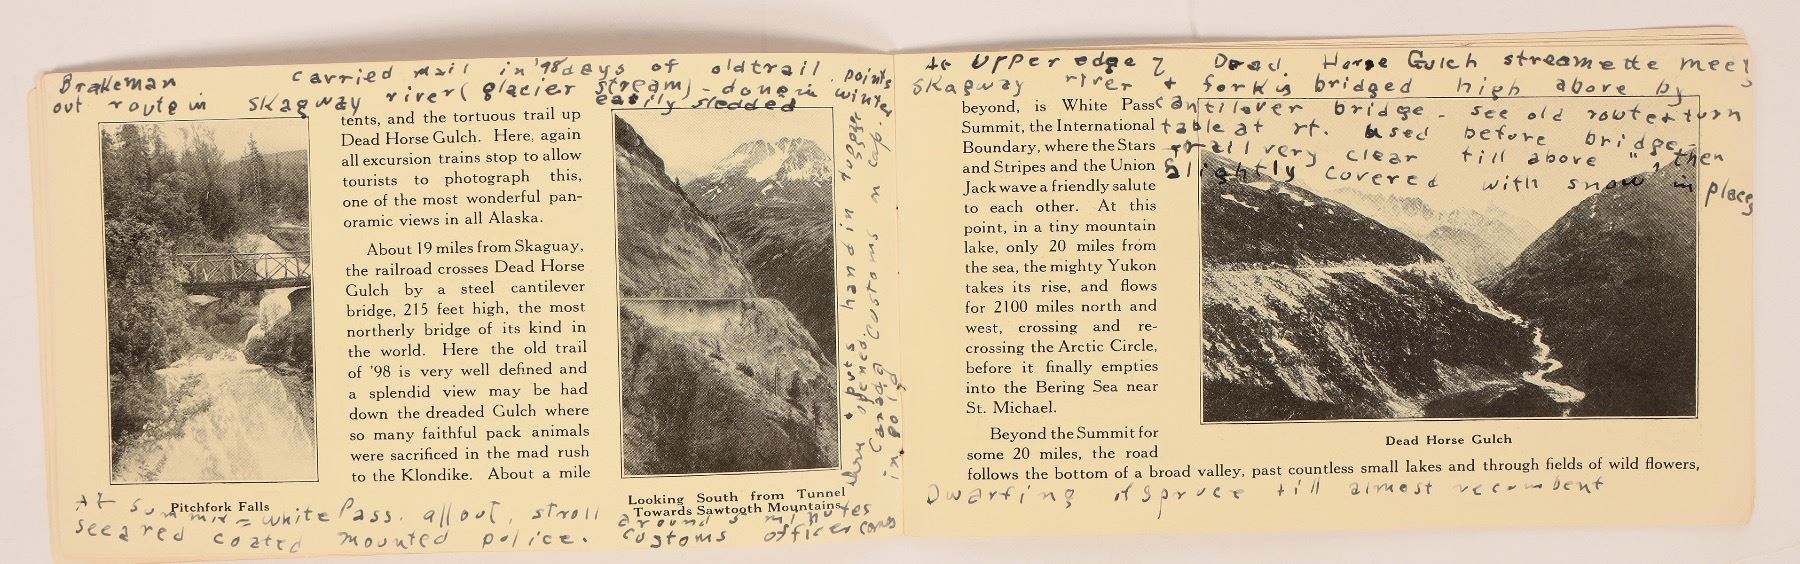 Brakeman carried mail in '98 days of old trail. points
out route in Skagway river (glacier stream) - done in winter
easily sledded
tents, and the tortuous trail up
Dead Horse Gulch. Here, again
all excursion trains stop to allow
tourists to photograph this,
one of the most wonderful pan-
oramic views in all Alaska.
About 19 miles from Skaguay,
the railroad crosses Dead Horse
Gulch by a steel cantilever
bridge, 215 feet high, the most
northerly bridge of its kind in
the world. Here the old trail
of '98 is very well defined and
a splendid view may be had
down the dreaded Gulch where
so many faithful pack animals
were sacrificed in the mad rush
to the Klondike. About a mile
Pitchfork Falls
Looking South from Tunnel
Towards Sawtooth Mountains
At Summit = White Pass. all out, stroll around 5 minutes
see a red coated mounted police. Customs officer comes
puts hand in
opened. Customs in cap.
Canada
in gold
At Upper edge Dead Horse Gulch streamette meets
Skagway river + fork is bridged high above by
cantilever bridge - see old route + turn
table at rt. used before bridge -
trail very clear till above " then
slightly covered with snow in places
beyond, is White Pass
Summit, the International
Boundary, where the Stars
and Stripes and the Union
Jack wave a friendly salute
to each other. At this
point, in a tiny mountain
lake, only 20 miles from
the sea, the mighty Yukon
takes its rise, and flows
for 2100 miles north and
west, crossing and re-
crossing the Arctic Circle,
before it finally empties
into the Bering Sea near
St. Michael.
Beyond the Summit for
some 20 miles, the road
follows the bottom of a broad valley, past countless small lakes and through fields of wild flowers,
Dead Horse Gulch
Dwarfing of Spruce till almost recumbent